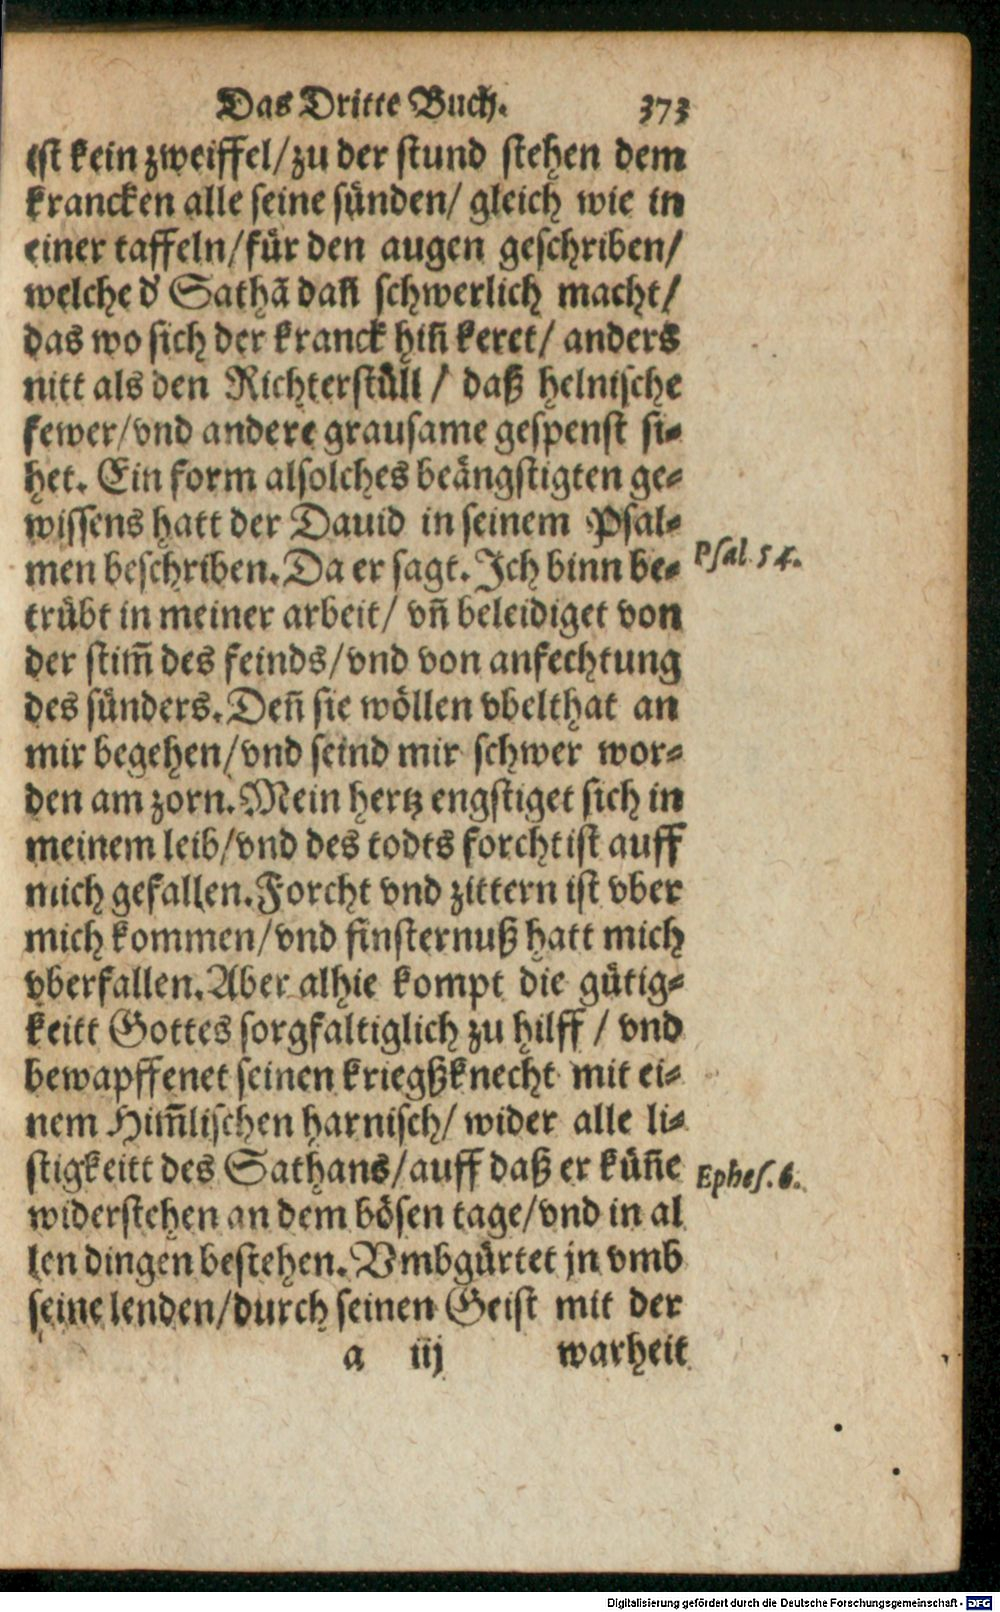 Das Dritte Buch. 373
ist kein zweiffel/zu der stund stehen dem
krancken alle seine sünden/ gleich wie in
einer taffeln/für den augen geschriben/
welche d' Sathã dañ schwerlich macht/
das wo sich der kranck hiñ keret/ anders
nitt als den Richterstůll / daß helnische
fewer/vnd andere grausame gespenst si-
het. Ein form alsolches beängstigten ge-
wissens hatt der Dauid in seinem Psal-
men beschriben. Da er sagt. Ich binn be-
Psal 54.
trübt in meiner arbeit/ vñ beleidiget von
der stim̃ des feinds/vnd von anfechtung
des sünders. Deñ sie wöllen vbelthat an
mir begehen/vnd seind mir schwer wor-
den am zorn. Mein hertz engstiget sich in
meinem leib/vnd des todts forcht ist auff
mich gefallen. Forcht vnd zittern ist vber
mich kommen/vnd finsternuß hatt mich
vberfallen. Aber alhie kompt die gütig-
keitt Gottes sorgfaltiglich zu hilff / vnd
bewapffenet seinen kriegßknecht mit ei-
nem Him̃lischen harnisch/ wider alle li-
stigkeitt des Sathans/auff daß er küñe
Ephes. 6.
widerstehen an dem bösen tage/vnd in al
len dingen bestehen. Vmbgürtet jn vmb
seine lenden/durch seinen Geist mit der
a iij warheit
Digitalisierung gefördert durch die Deutsche Forschungsgemeinschaft - DFG